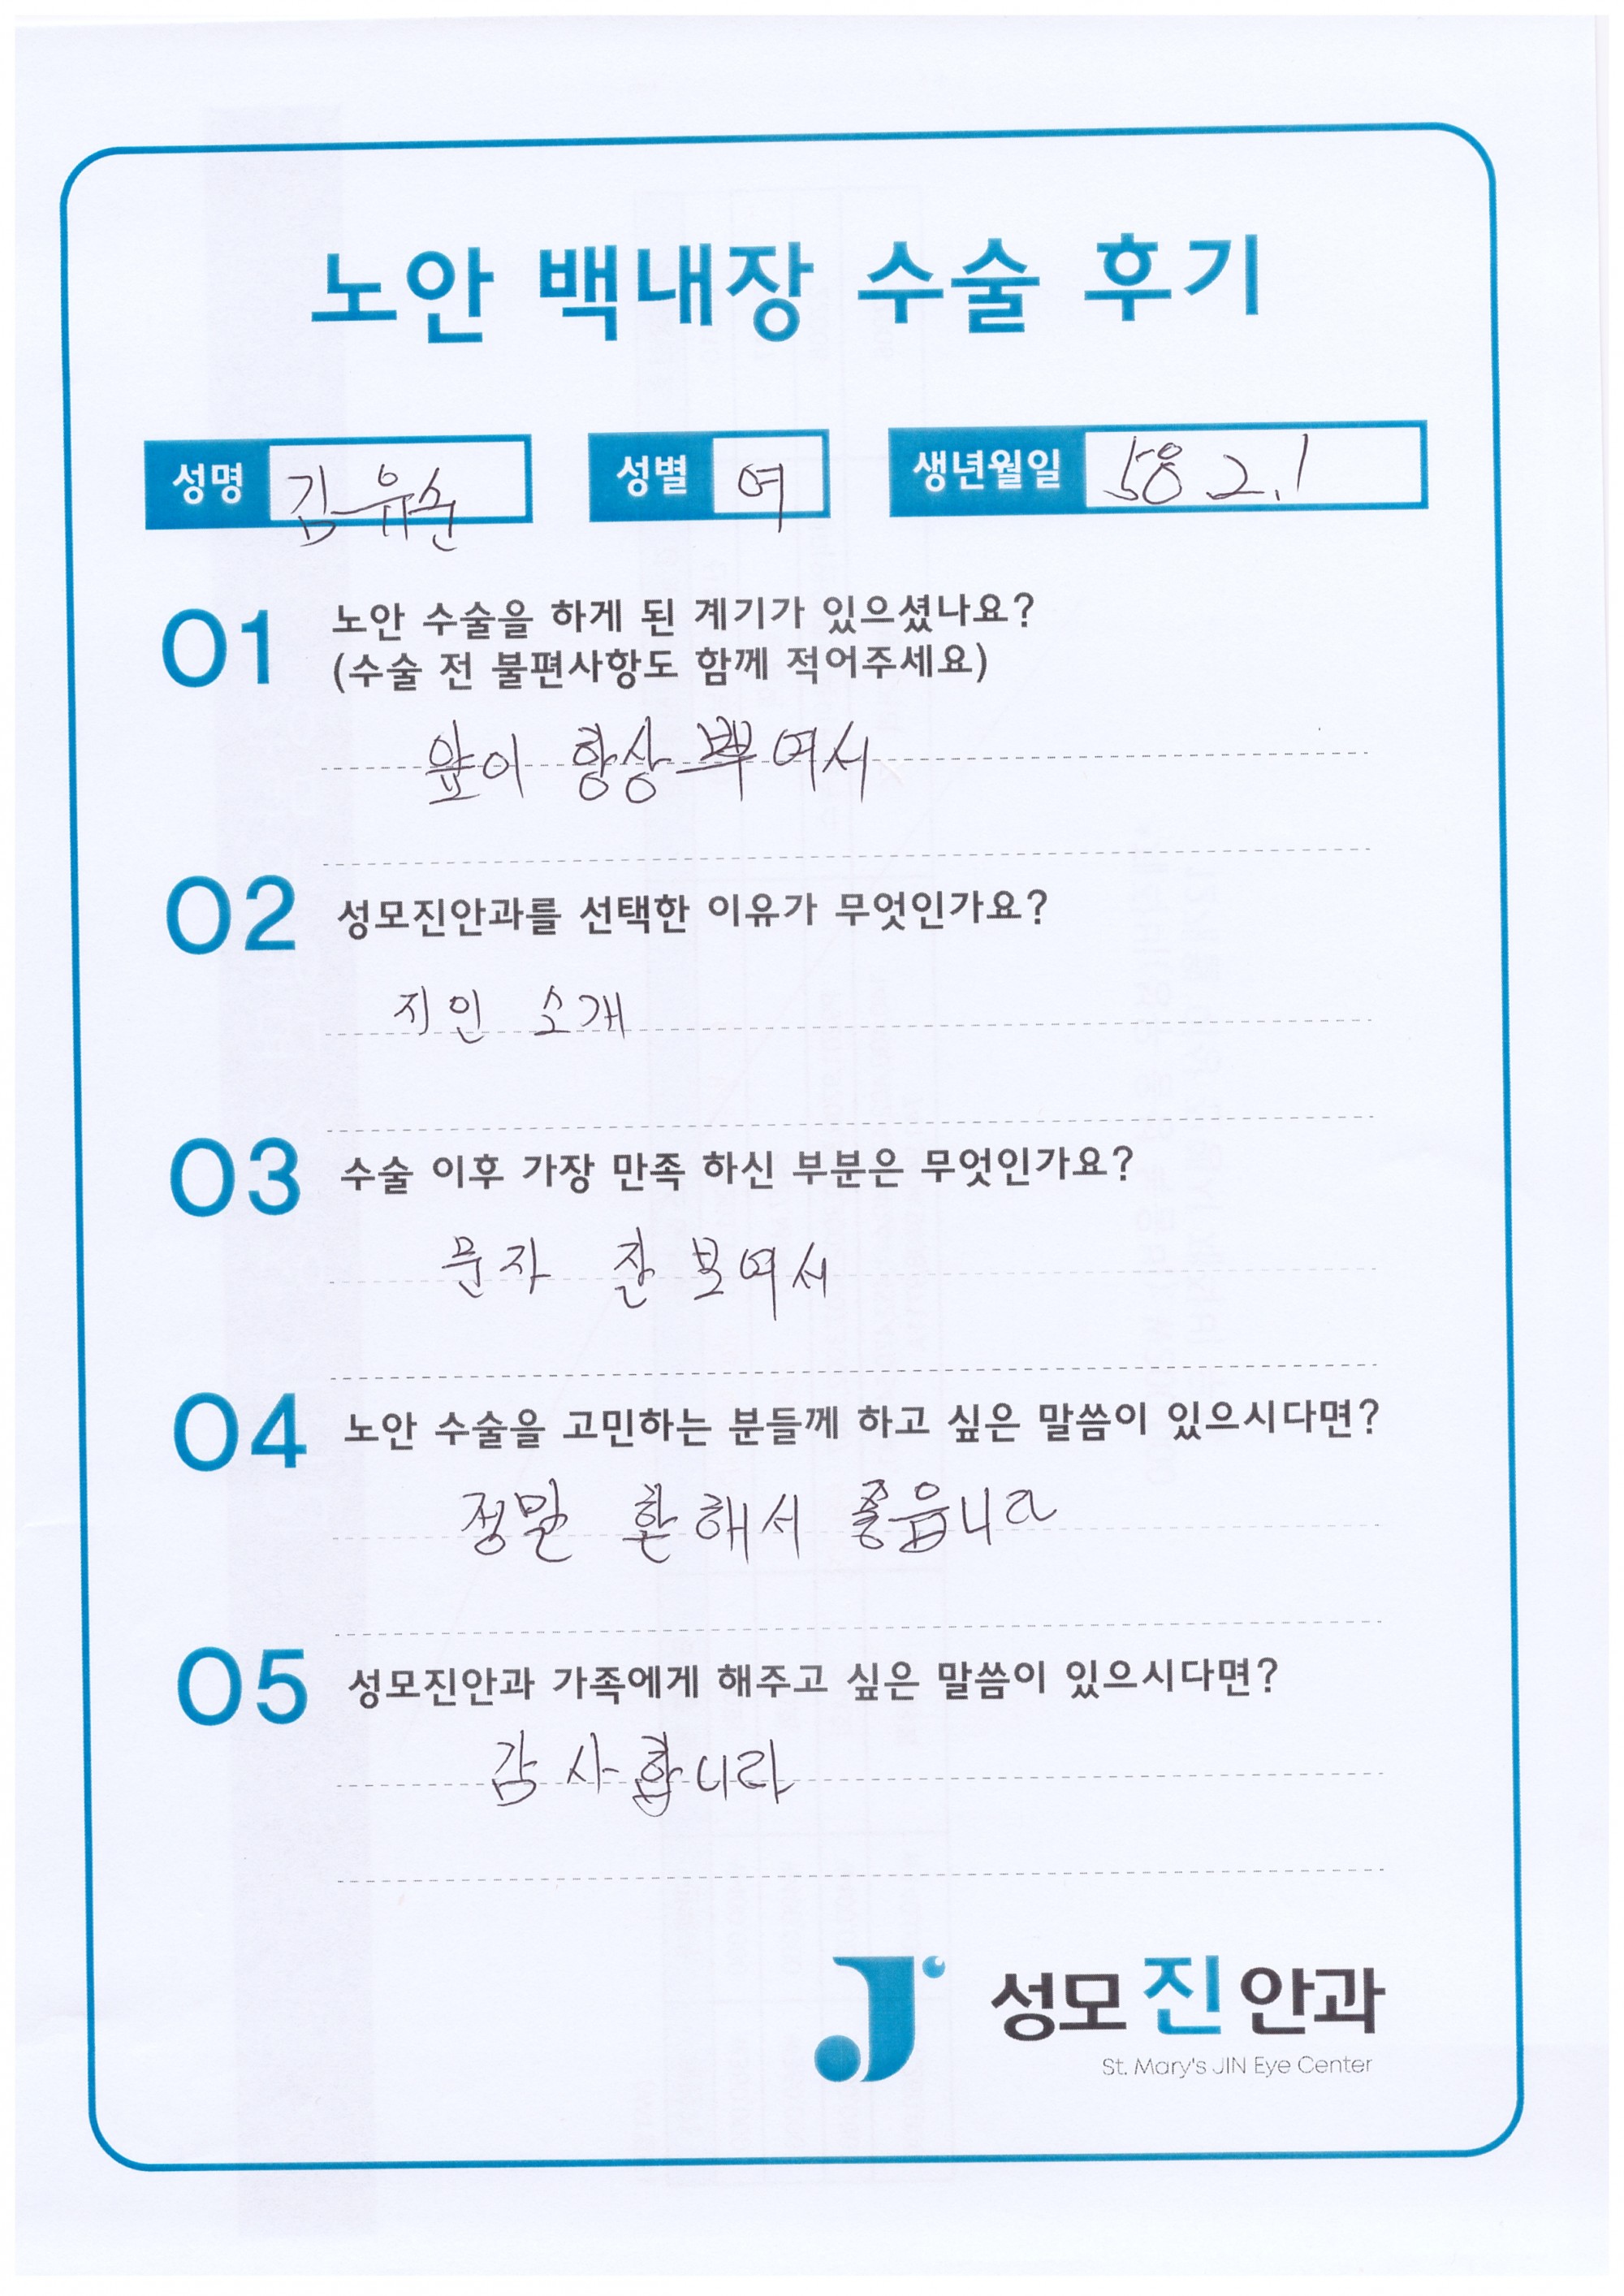 노안 백내장 수술 후기
성명 김유순 성별 여 생년월일 58 2.1
01 노안 수술을 하게 된 계기가 있으셨나요?
(수술 전 불편사항도 함께 적어주세요)
앞이 항상 뿌여서
02 성모진안과를 선택한 이유가 무엇인가요?
지인 소개
03 수술 이후 가장 만족 하신 부분은 무엇인가요?
문자 잘 보여서
04 노안 수술을 고민하는 분들께 하고 싶은 말씀이 있으시다면?
정말 환해서 좋읍니다
05 성모진안과 가족에게 해주고 싶은 말씀이 있으시다면?
감사합니다
성모진안과
St. Mary's JIN Eye Center